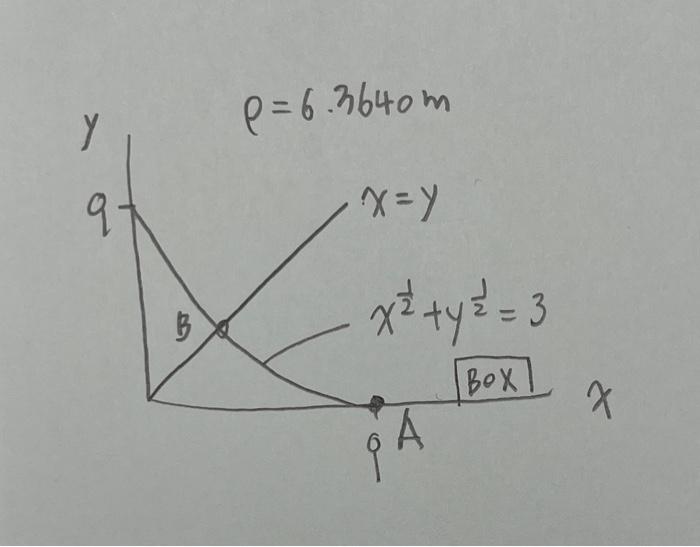 ρ = 6.3640 m
y
9
x = y
B
x^{1/2} + y^{1/2} = 3
BOX
x
A
9